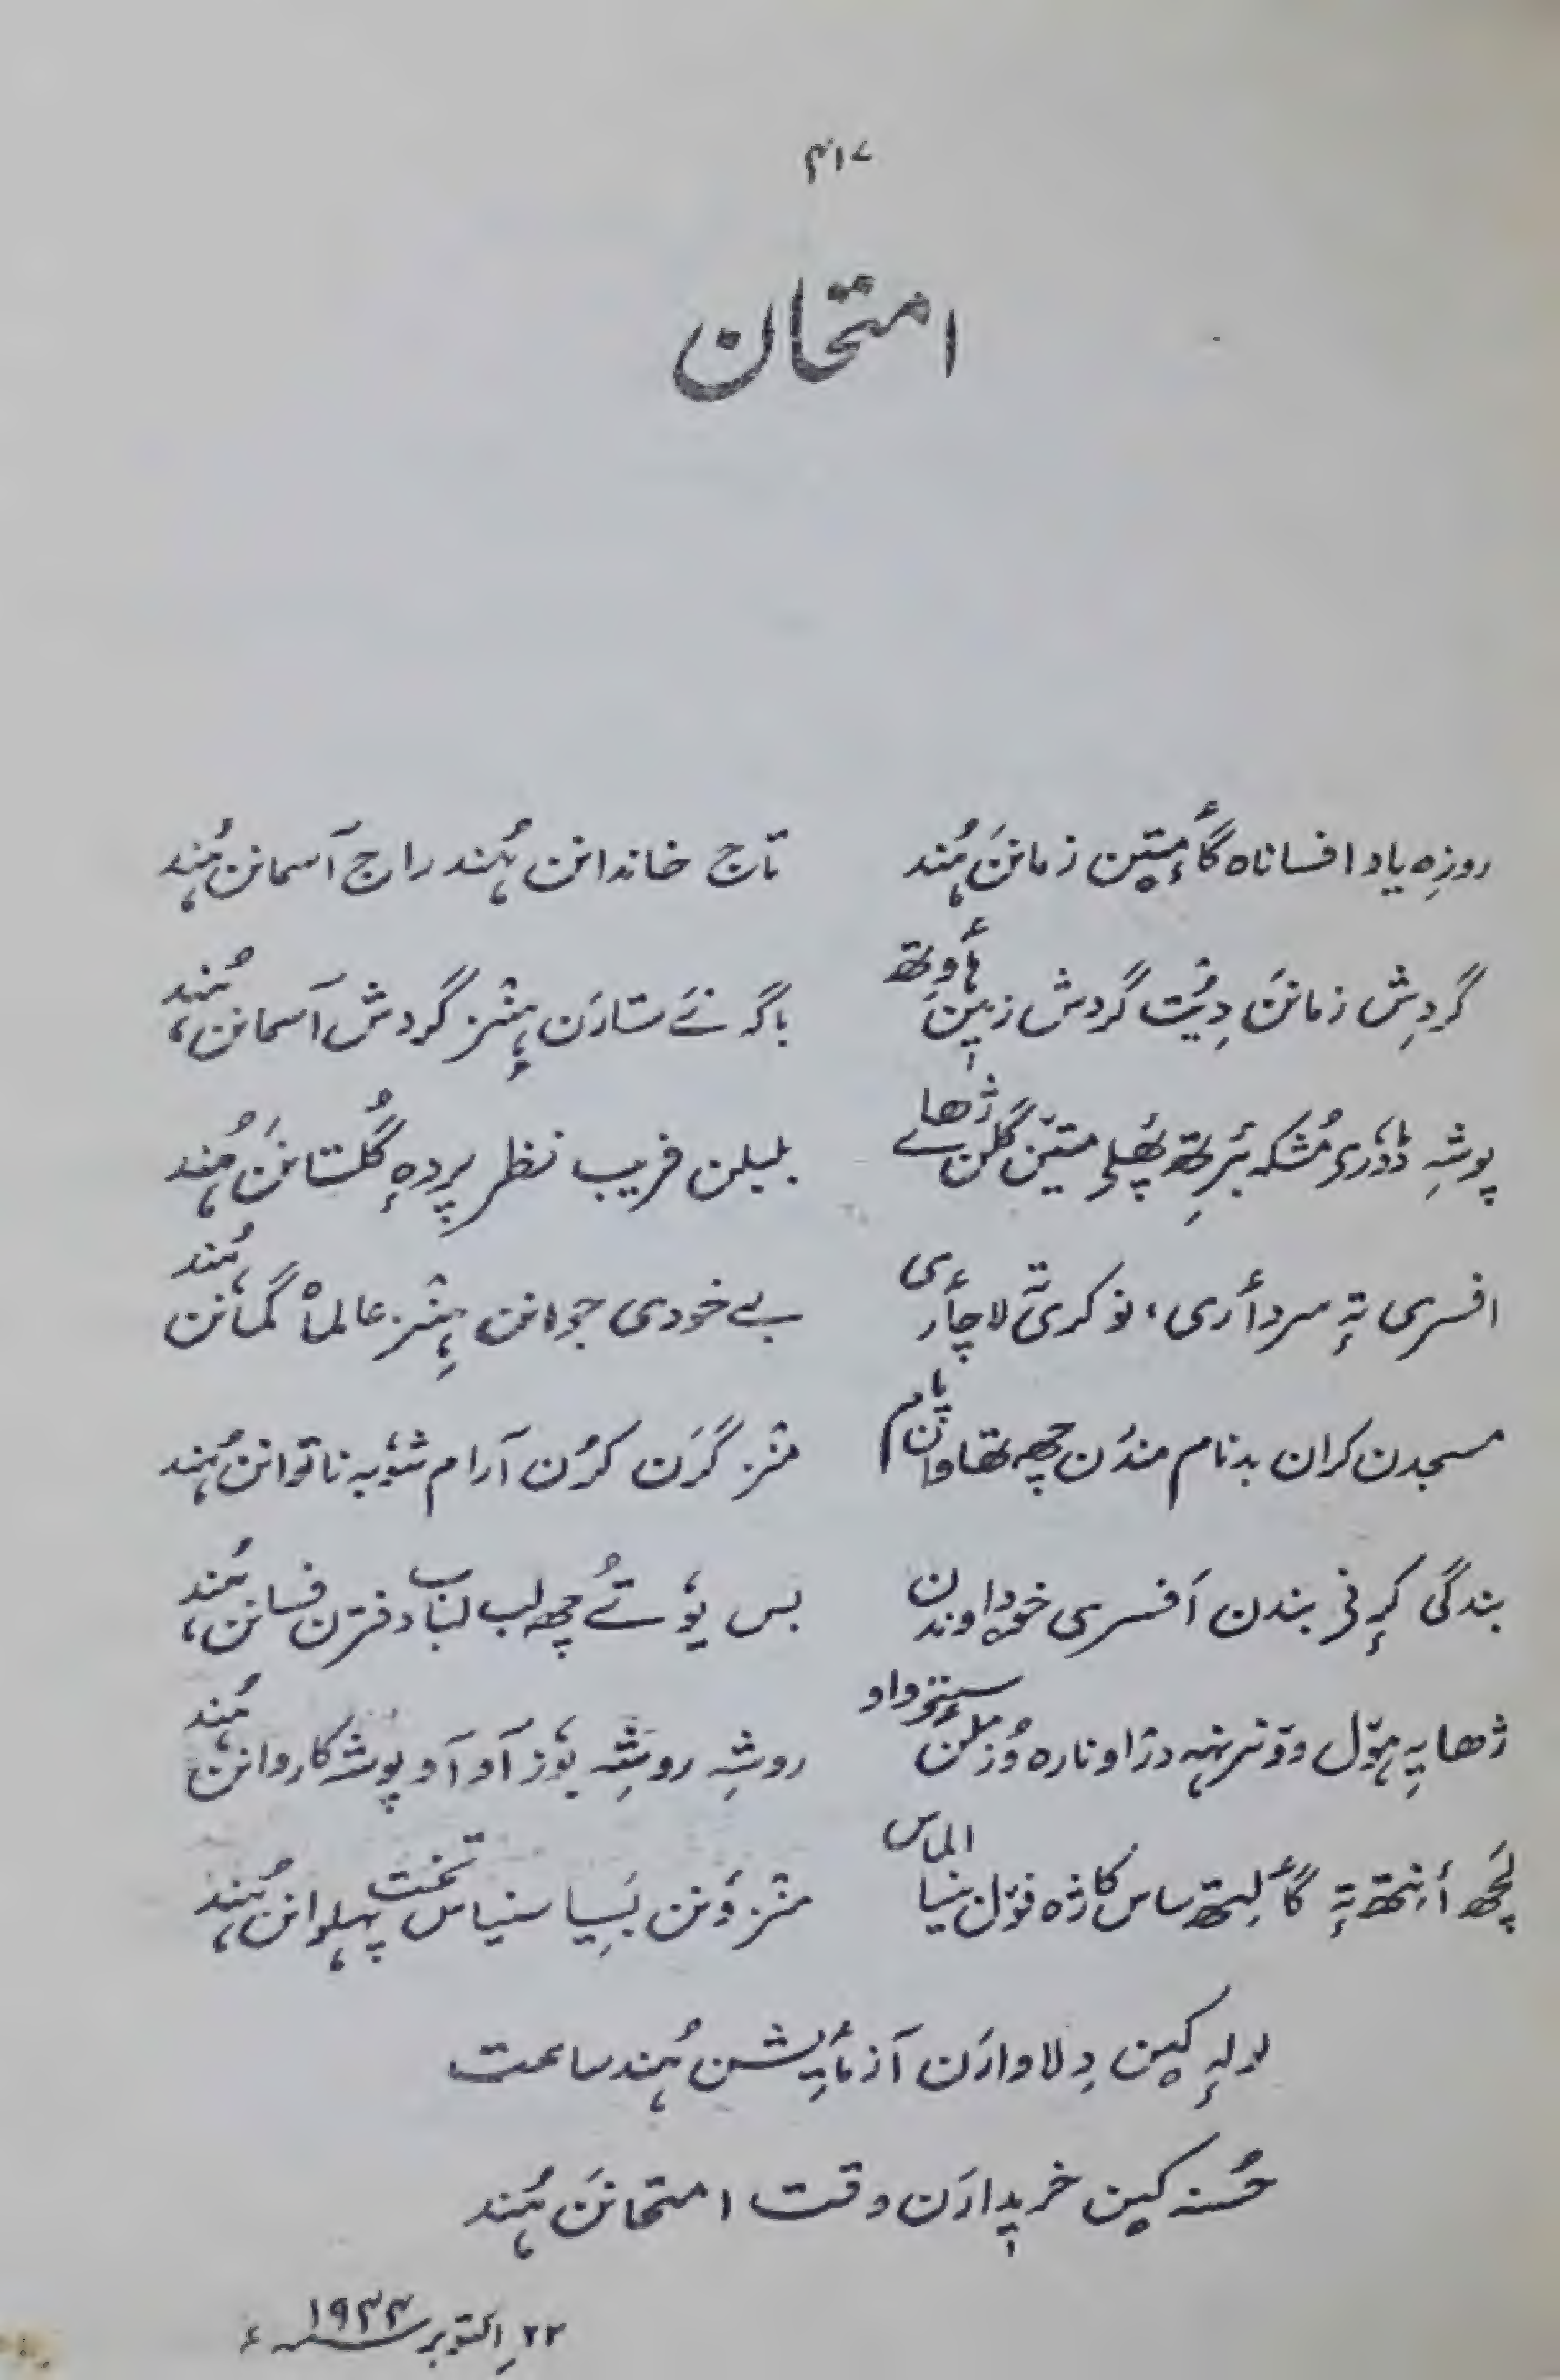 ۴۱۷
امتحان
روزِہ یاد افساناہ گأمتیٚن زمانَن ہُند تاج خاندانن ہُند راج آسمانن ہُند
گردِش زمانَن دِیُت گردش زمیٖنَن ہأوِتھ باگہ نَے ستارَن ہٕنٛز گردش آسمانن ہُند
پوشہِ ڈٲدٔری مُشکہ بٔرِتھ پھٔلی متیٚن گُلن ژھائے بلبلن فریب نظر پردہِ گُلستانَن ہُند
افسری تہٕ سردأری، نوکری تہٕ لاچأری بے خودی جوانن ہِنٛز عالماہ گمانن ہُند
مسجدن کران بدنام مندرن چھ تھاوان پام منٛز گرَن کرُن آرام شیوٚبہ ناتوانن ہُند
بندگی کرٕنی بندن اَفسری خوداوندن بس یوٗتُے چھ لب لباب دفترن فسانن ہُند
ژھایہِ ہوٚل ووٚنۍ نہٕ درٛاو نارہ وُزملَن سٟتۍ واو روشہِ روشہِ یوٗر آو آو پوشہ کاروانن ہُند
پَچھ أنِتھ تہٕ گألِتھ ساس کاژہ فوٚل بنیا الماس منٛز وَنن بَسِیا سنیاس تخت پہلوانن ہُند
لولہٕ کیٚن دِلاوارَن آزمأیِشن ہُند ساعت
حُسنہ کیٚن خریٖدارَن وقت امتحانَن ہُند
۲۲ اکتوبر ۱۹۴۴ء